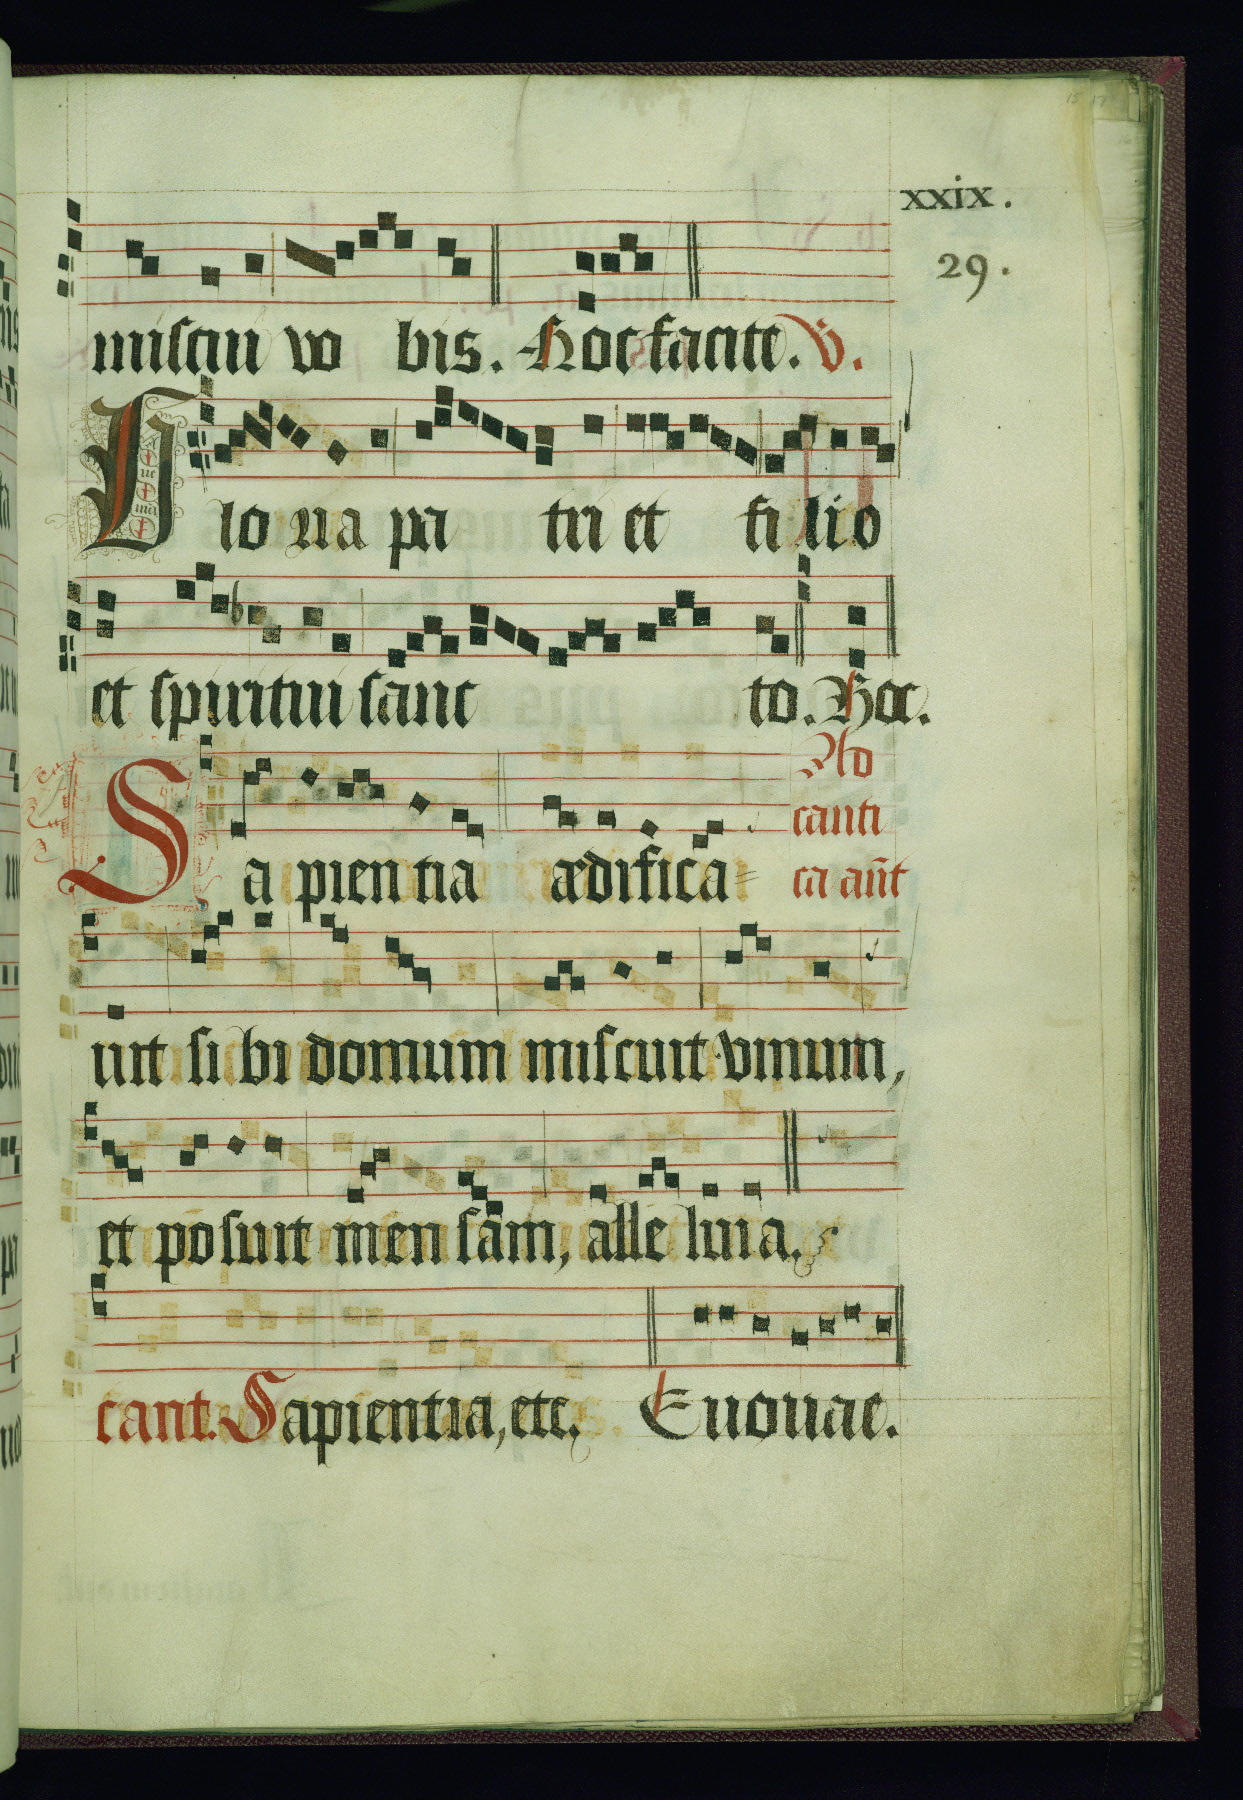 xxix.
29.
miscui vo bis. Hoc facite. V.
Glo ria pa tri et fi lio
et spiritui sanc to. Hoc.
Ad
canti
Sa pien tia ædifica=
ca añt
uit si bi domum miscuit vinum,
et posuit men sam, alle luia.
cant. Sapientia, etc. Euouae.